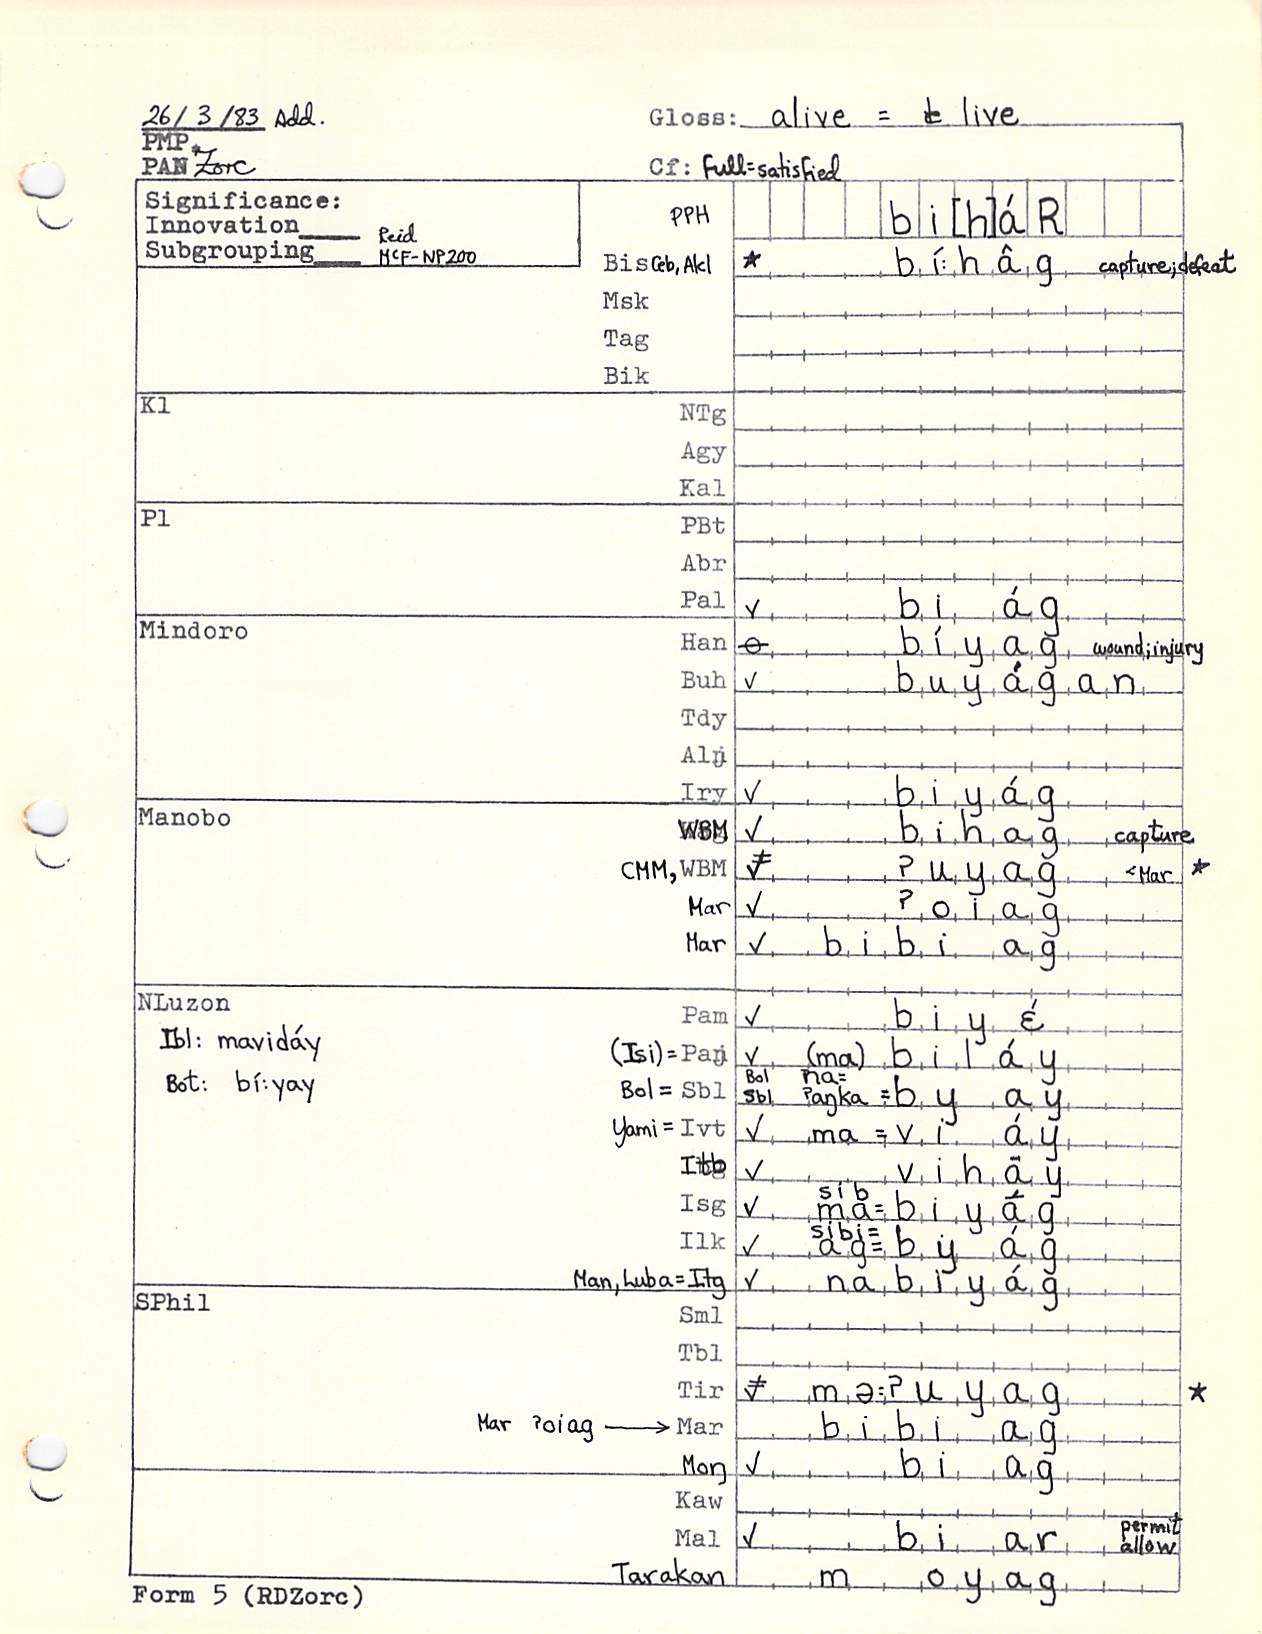 26/3/83 Add.
Gloss: alive = live
PMP
PAN Zorc
Cf: Full=satisfied
Significance:
Innovation____ Reid
Subgrouping____ McF-NP200
PPH bi[h]áR
Bis Ceb, Akl * bí:hâg capture; defeat
Msk
Tag
Bik
Kl
NTg
Agy
Kal
Pl
PBt
Abr
Pal ✓ bi ág
Mindoro
Han bíyag wound; injury
Buh ✓ buyágan
Tdy
Alŋ
Iry ✓ biyág
Manobo
WBM ✓ bihag capture
CMM, WBM ≠ ?uyag <Mar *
Mar ✓ ?oiag
Mar ✓ bibi ag
NLuzon
Pam ✓ biy é
Ibl: mavidáy
(Isi) = Paŋ ✓ (ma) biláy
Bot: bí:yay
Bol = Sbl Bol Sbl na= ?aŋka = by ay
Yami = Ivt ✓ ma = vi áy
✓ viháy
Isg ✓ síb ma= biyág
Ilk ✓ sibi= ag= by ág
Man, Luba = Itg ✓ nabiyág
SPhil
Sml
Tbl
Tir ≠ mə=?uyag *
Mar ?oiag → Mar bibi ag
Moŋ ✓ bi ag
Kaw
Mal ✓ bi ar permit allow
Tarakan m oyag
Form 5 (RDZorc)